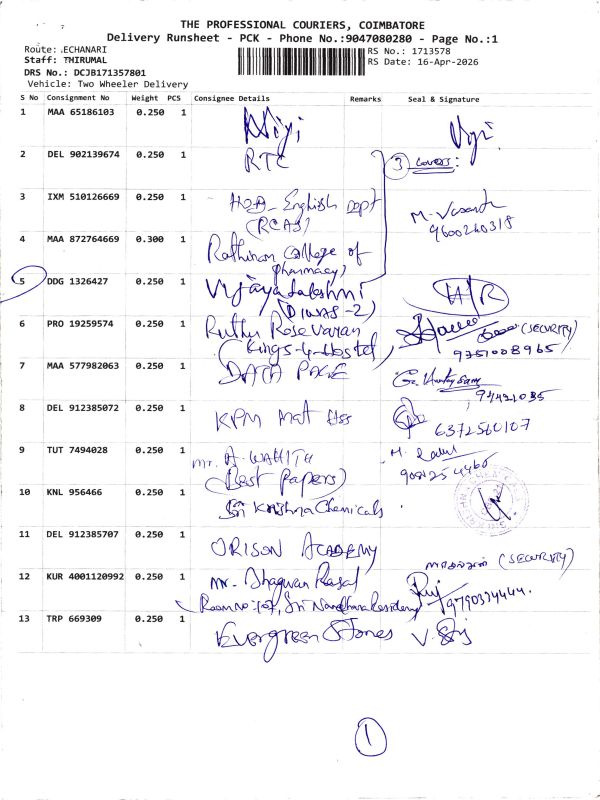 THE PROFESSIONAL COURIERS, COIMBATORE
Delivery Runsheet - PCK - Phone No.:9047080280 - Page No.:1
Route: ECHANARI
RS No.: 1713578
Staff: THIRUMAL
RS Date: 16-Apr-2026
DRS No.: DCJB171357801
Vehicle: Two Wheeler Delivery
S No Consignment No Weight PCS Consignee Details Remarks Seal & Signature
1 MAA 65186103 0.250 1
2 DEL 902139674 0.250 1 RTC 3 covers:
3 IXM 510126669 0.250 1 HOD-English Dept
(RCAS)
M. Vasanth
9600260318
4 MAA 872764669 0.300 1 Rathinam College of
pharmacy)
5 DDG 1326427 0.250 1 Vijayalakshmi
6 PRO 19259574 0.250 1 Ruthu Rose Varan
(Kings-4-Hostel)
(SECURITY)
9751008965
7 MAA 577982063 0.250 1 DATA PAGE
8 DEL 912385072 0.250 1 KPM Mat Hss
6372560107
9 TUT 7494028 0.250 1 Mr. A. WAHITH
(Best Papers)
10 KNL 956466 0.250 1 Sri Krishna Chemicals
11 DEL 912385707 0.250 1 ORISON ACADEMY
(SECURITY)
12 KUR 4001120992 0.250 1 Mr. Bhagwan Rasal
Room No-107, Sri Nandhana Residency
9790374444.
13 TRP 669309 0.250 1 Evergreen Stones
1